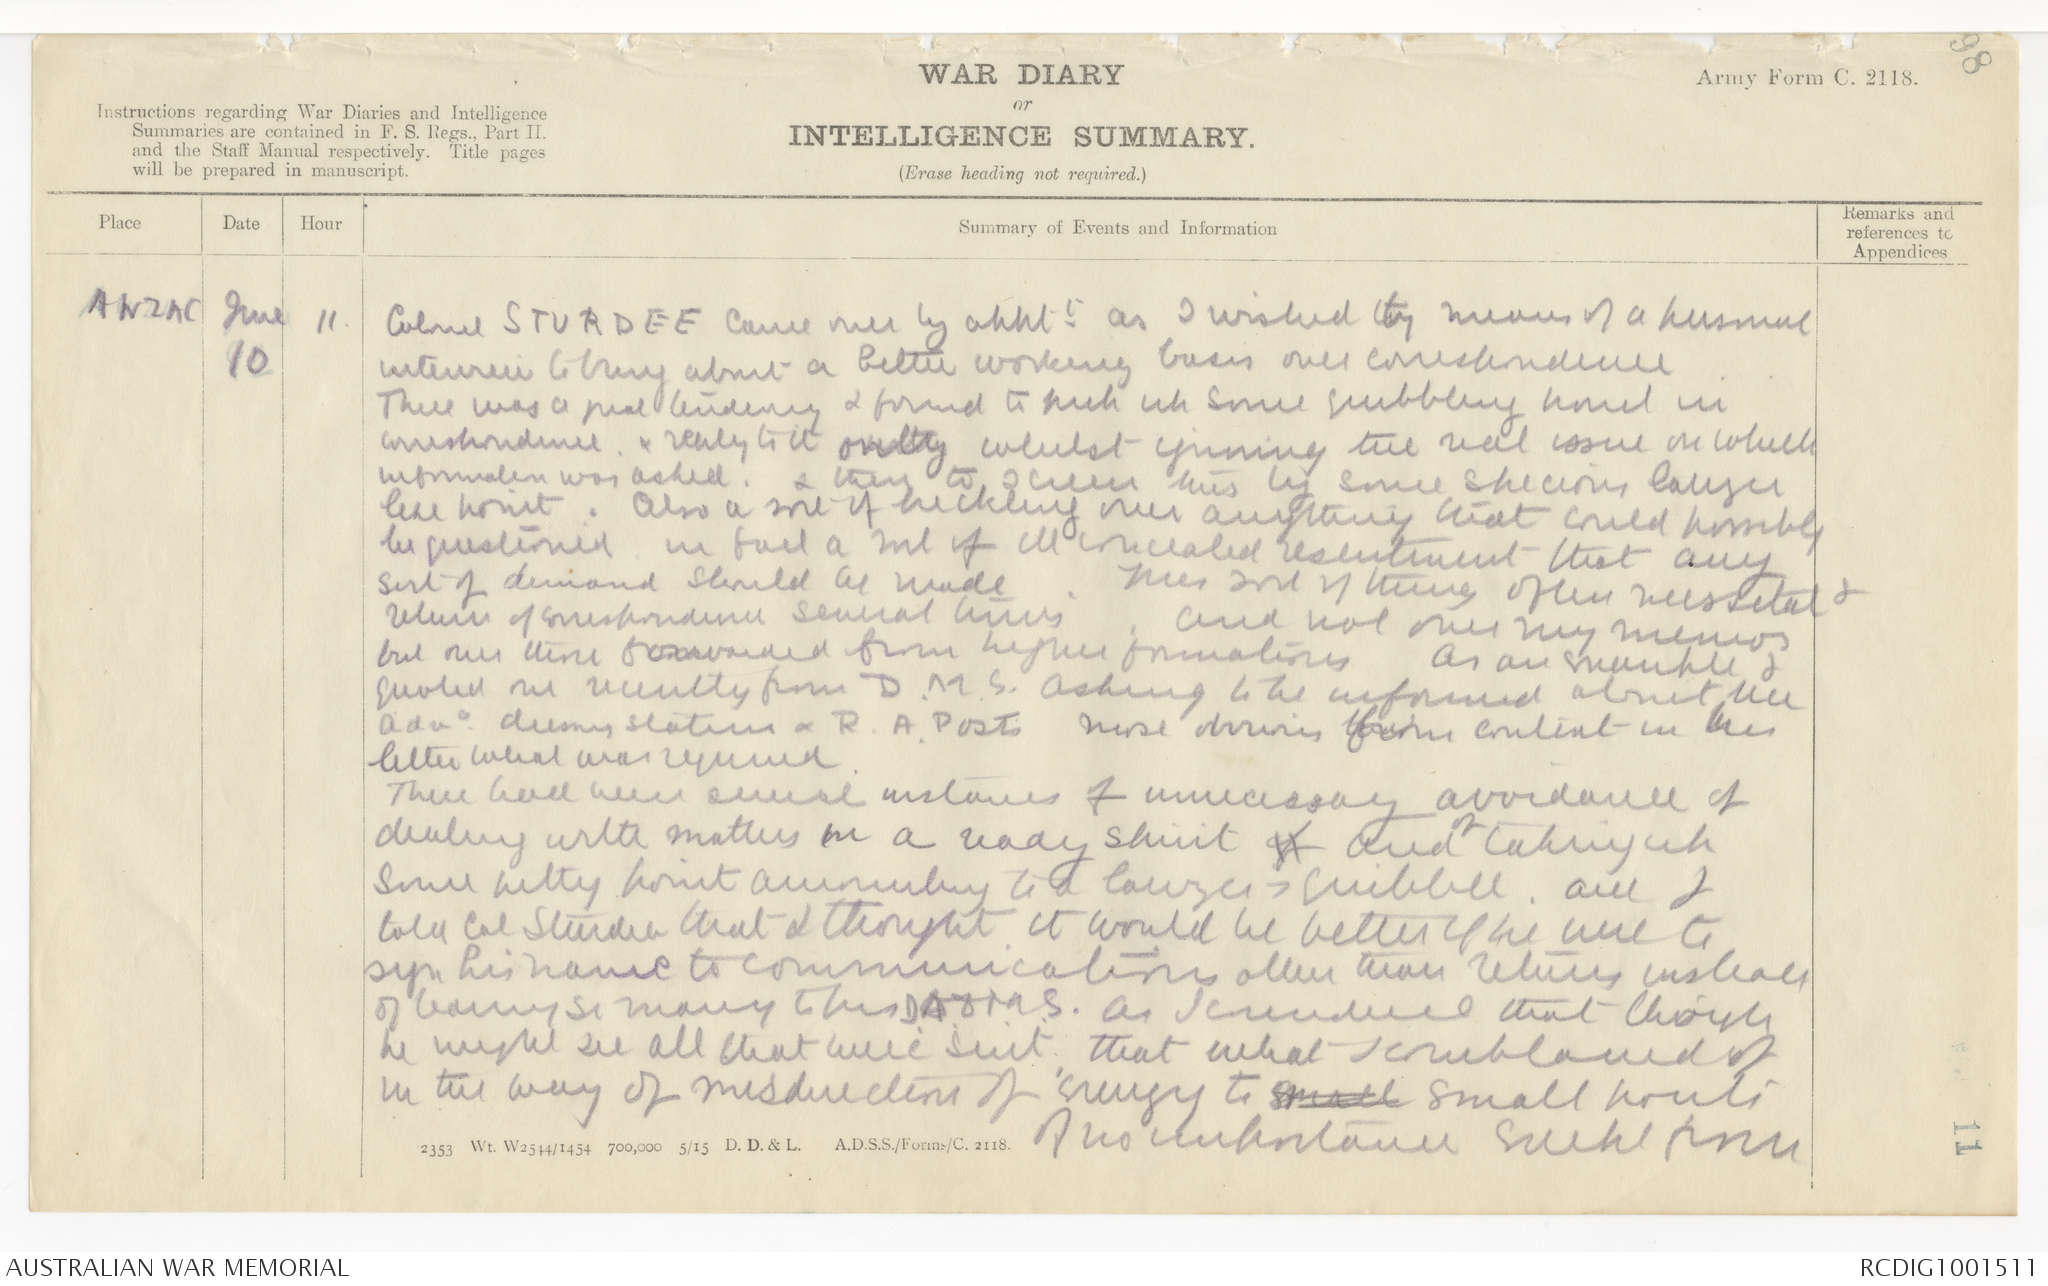 98
WAR DIARY
or
INTELLIGENCE SUMMARY.
(Erase heading not required.)
Army Form C. 2118.
Instructions regarding War Diaries and Intelligence
Summaries are contained in F. S. Regs., Part II.
and the Staff Manual respectively. Title pages
will be prepared in manuscript.
Place
Date
Hour
Summary of Events and Information
Remarks and
references to
Appendices
ANZAC
June
10
11.
Colonel STURDEE came over by appt. as I wished by means of a personal
interview to bring about a better working basis over correspondence
There was a great tendency I found to pick up some quibbling point in
correspondence. & reply to it only whilst ignoring the real issue on which
information was asked. & then to screen this by some specious lawyer
like point. Also a sort of heckling over anything that could possibly
be questioned in fact a sort of ill concealed resentment that any
sort of demand should be made. This sort of thing often necessitated
return of correspondence several times, and not over my memos
but over those forwarded from higher formations As an example I
quoted one recently from D.M.S. asking to be informed about the
adv. dressing stations & R.A. Posts most obvious from context in his
letter what was required.
There had been several instances of unnecessary avoidance of
dealing with matters in a ready spirit and of taking up
some petty point amounting to a lawyer's quibble. and I
told Col Sturdee that I thought it would be better if he were to
sign his name to communications other than returns instead
of leaving so many to his DADMS. as I considered that though
he might see all that were sent, that what I complained of
in the way of misdirection of energy to small small points
of no importance sprang from
2353 Wt. W2544/1454 700,000 5/15 D. D. & L. A.D.S.S./Forms/C. 2118.
11
AUSTRALIAN WAR MEMORIAL
RCDIG1001511